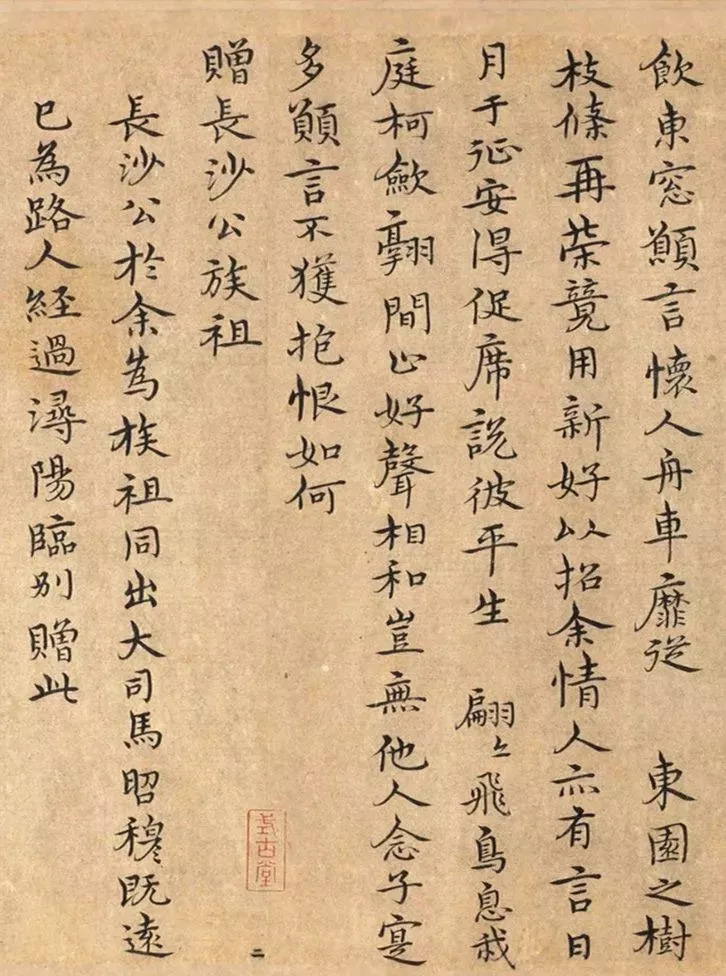 飲東窓願言懷人舟車靡從　東園之樹
枝條再榮競用新好以招余情人亦有言日
月于征安得促席說彼平生　翩々飛鳥息我
庭柯斂翮間止好聲相和豈無他人念子寔
多願言不獲抱恨如何
贈長沙公族祖
長沙公於余為族祖同出大司馬昭穆既遠
已為路人經過潯陽臨別贈此
式古堂
二